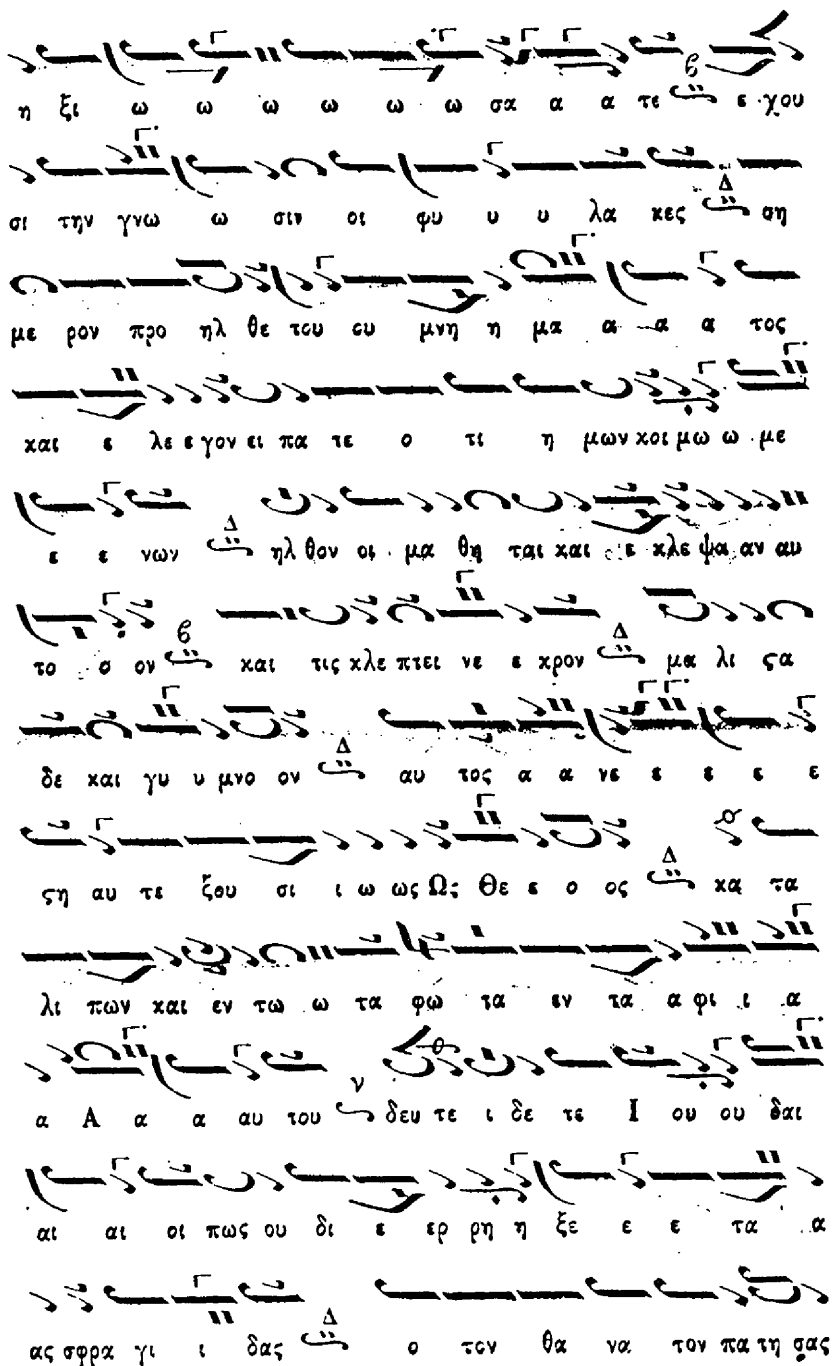 η ξι ω ω ω ω ω ω σα α α τε ε χου
σι την γνω ω σιν οι φυ υ υ λα κες ση
με ρον προ ηλ θε του ου μνη η μα α α α τος
και ε λε ε γον ει πα τε ο τι η μων κοι μω ω με
ε ε νων ηλ θον οι μα θη ται και ε κλε ψα αν αυ
το ο ον και τις κλε πτει νε ε κρον μα λι ϛα
δε και γυ υ μνο ον αυ τος α α νε ε ε ε ε
ϛη αυ τε ξου σι ι ω ως Ως Θε ε ο ος κα τα
λι πων και εν τω ω τα φω τα εν τα α φι ι α
α Α α α αυ του δευ τε ι δε τε Ι ου ου δαι
αι αι οι πως ου δι ε ερ ρη η ξε ε ε τα α
ας σφρα γι ι δας ο τον θα να τον πα τη σας